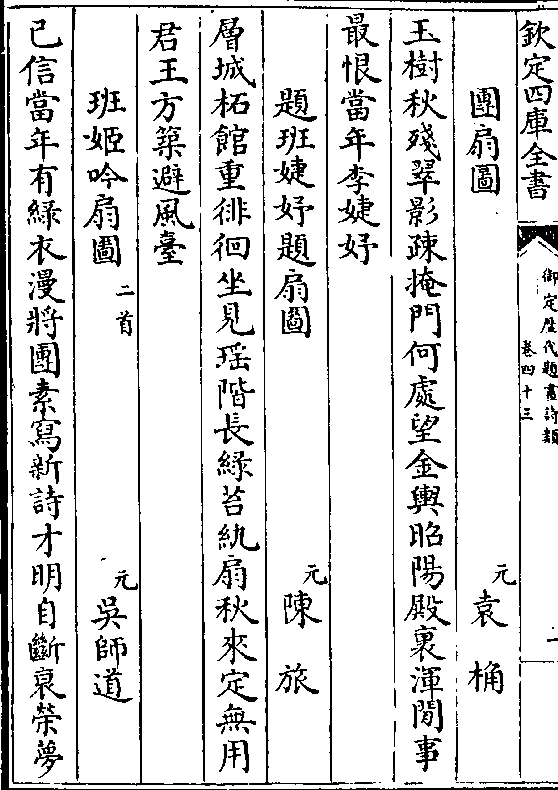 欽定四庫全書
御定歴代題畫詩類
卷四十三
團扇圖
元袁桷
玉樹秋殘翠影疎掩門何處望金輿昭陽殿裏渾閒事
最恨當年李婕妤
題班婕妤題扇圖
元陳旅
層城柘館重徘徊坐見瑶階長緑苔紈扇秋來定無用
君王方築避風臺
班姬吟扇圖二首
元吳師道
已信當年有緑衣漫將團素寫新詩才明自斷裒榮夢